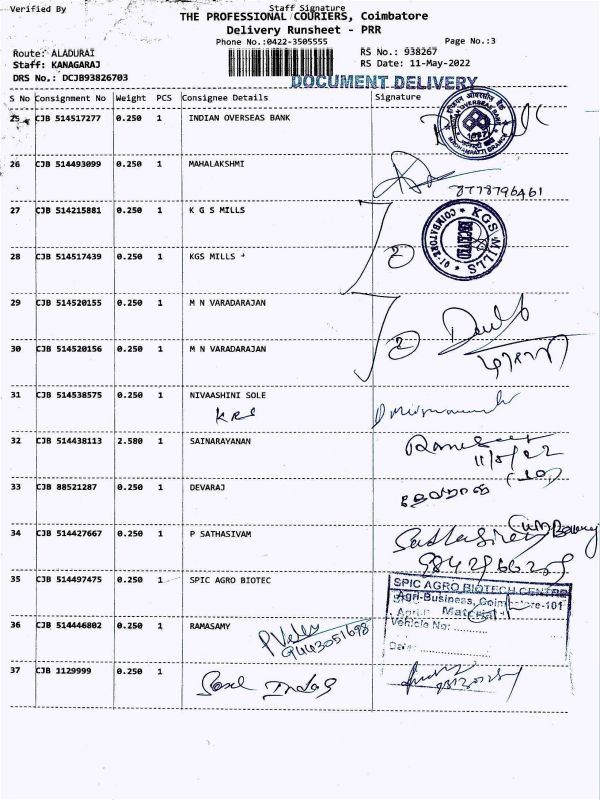 Verified By Staff Signature
THE PROFESSIONAL COURIERS, Coimbatore
Delivery Runsheet - PRR
Phone No.:0422-3505555 Page No.:3
Route: ALADURAI RS No.: 938267
Staff: KANAGARAJ RS Date: 11-May-2022
DRS No.: DCJB93826703
DOCUMENT DELIVERY
S No Consignment No Weight PCS Consignee Details Signature
25 CJB 514517277 0.250 1 INDIAN OVERSEAS BANK
26 CJB 514493099 0.250 1 MAHALAKSHMI
8778796461
27 CJB 514215881 0.250 1 K G S MILLS
KGS MILLS
RECEIVED
28 CJB 514517439 0.250 1 KGS MILLS
2
29 CJB 514520155 0.250 1 M N VARADARAJAN
30 CJB 514520156 0.250 1 M N VARADARAJAN
2
31 CJB 514538575 0.250 1 NIVAASHINI SOLE
KRS
32 CJB 514438113 2.580 1 SAINARAYANAN
11/5/22
33 CJB 88521287 0.250 1 DEVARAJ
34 CJB 514427667 0.250 1 P SATHASIVAM
35 CJB 514497475 0.250 1 SPIC AGRO BIOTEC
SPIC AGRO BIOTECH CENTRE
Agri-Business,
Material
Vehicle No:
Date:
36 CJB 514446802 0.250 1 RAMASAMY
9443051698
37 CJB 1129999 0.250 1